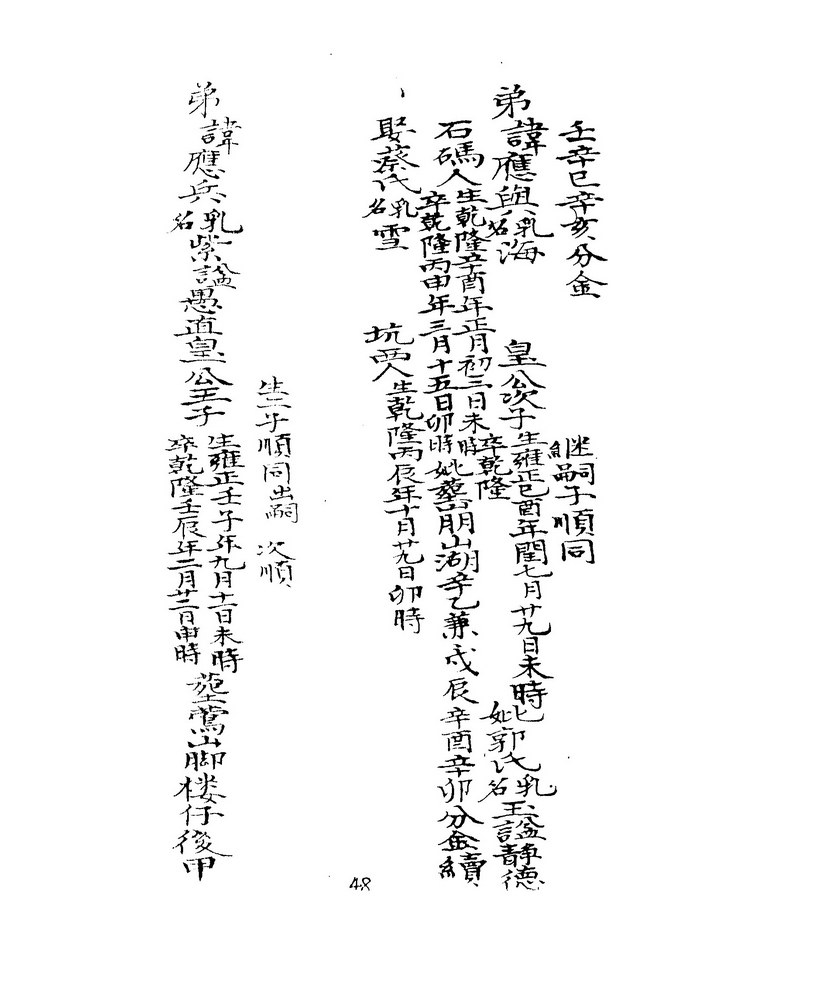 壬辛巳辛亥分金
継嗣子順同
弟諱應與乳名海 皇公次子生雍正己酉年閏七月廿九日未時 妣郭氏乳名玉諡靜德
卒乾隆
石碼人生乾隆辛酉年正月初三日未時
卒乾隆丙申年三月十五日卯時 妣塟朋山湖辛乙兼戍辰辛酉辛卯分金續
娶蔡氏乳名雪 坑西人生乾隆丙辰年十月廿九日卯時
48
生二子順同出嗣 次順
弟諱應兵乳名紫諡愚直皇公三子 生雍正壬子年九月十一日未時
卒乾隆壬辰年二月廿二日申時 塟鶯山脚楼仔後甲